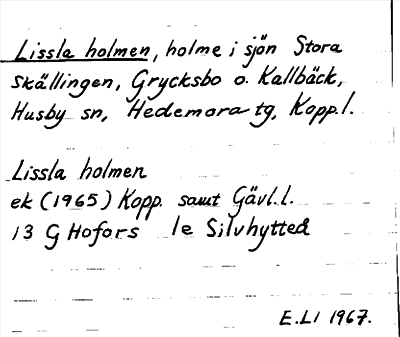 Lissla holmen, holme i sjön Stora
Skällingen, Grycksbo o. Kallbäck,
Husby sn, Hedemora tg, Kopp.l.
Lissla holmen
ek (1965) Kopp. samt Gävl.l.
13 G Hofors 1e Silvhytteå
E.Li 1967.